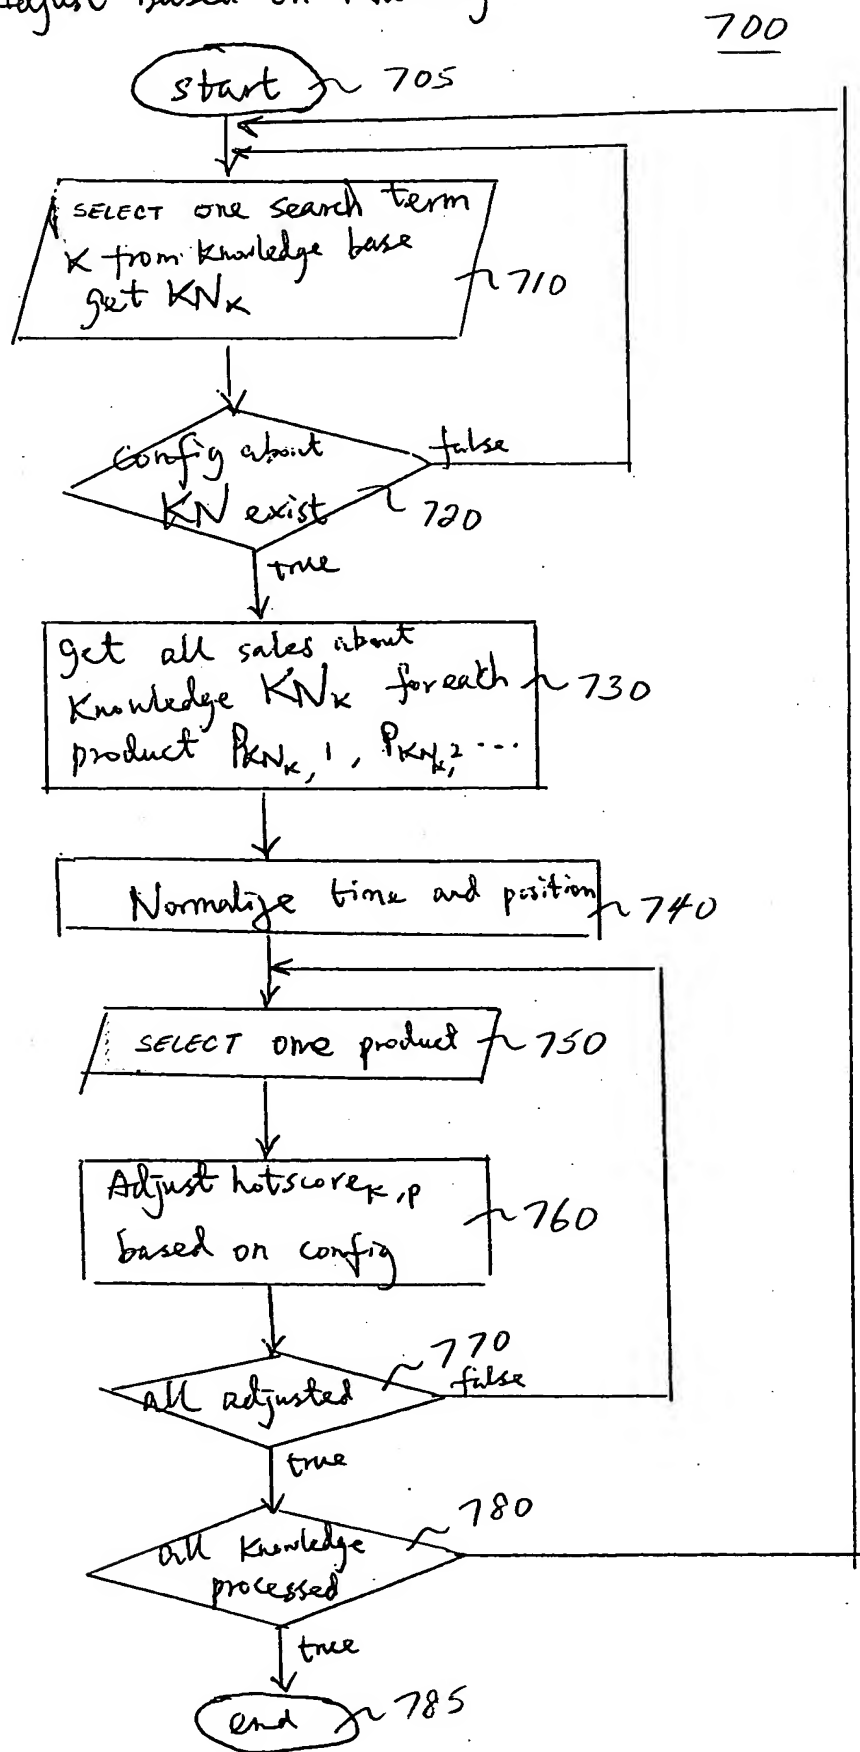 Adjust Based on
700
start 705
SELECT one search term
K from Knowledge base
get KNₖ
710
Config about
KN exist
false
720
true
get all sales about
Knowledge KNₖ for each
product P_KNₖ,1, P_KNₖ,2 ...
730
Normalize time and position
740
SELECT one product 750
Adjust hotscoreₖ,ₚ
based on config
760
770
all adjusted
false
true
780
all Knowledge
processed
true
end 785